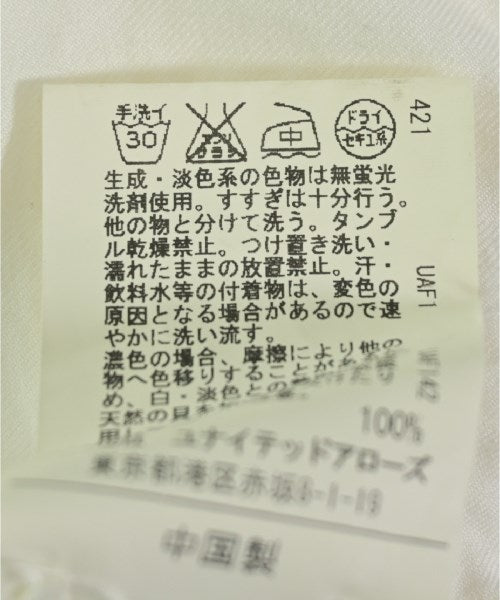 手洗イ
30
エンソ
サラシ
中
ドライ
セキユ系
421
生成・淡色系の色物は無蛍光
洗剤使用。すすぎは十分行う。
他の物と分けて洗う。タンブ
ル乾燥禁止。つけ置き洗い・
濡れたままの放置禁止。汗・
飲料水等の付着物は、変色の
原因となる場合があるので速
やかに洗い流す。
濃色の場合、摩擦により他の
物へ色移りすることがあ
め、白・淡色との
天然の貝を
用
UAF1
100%
ユナイテッドアローズ
東京都港区赤坂8-1-19
中国製